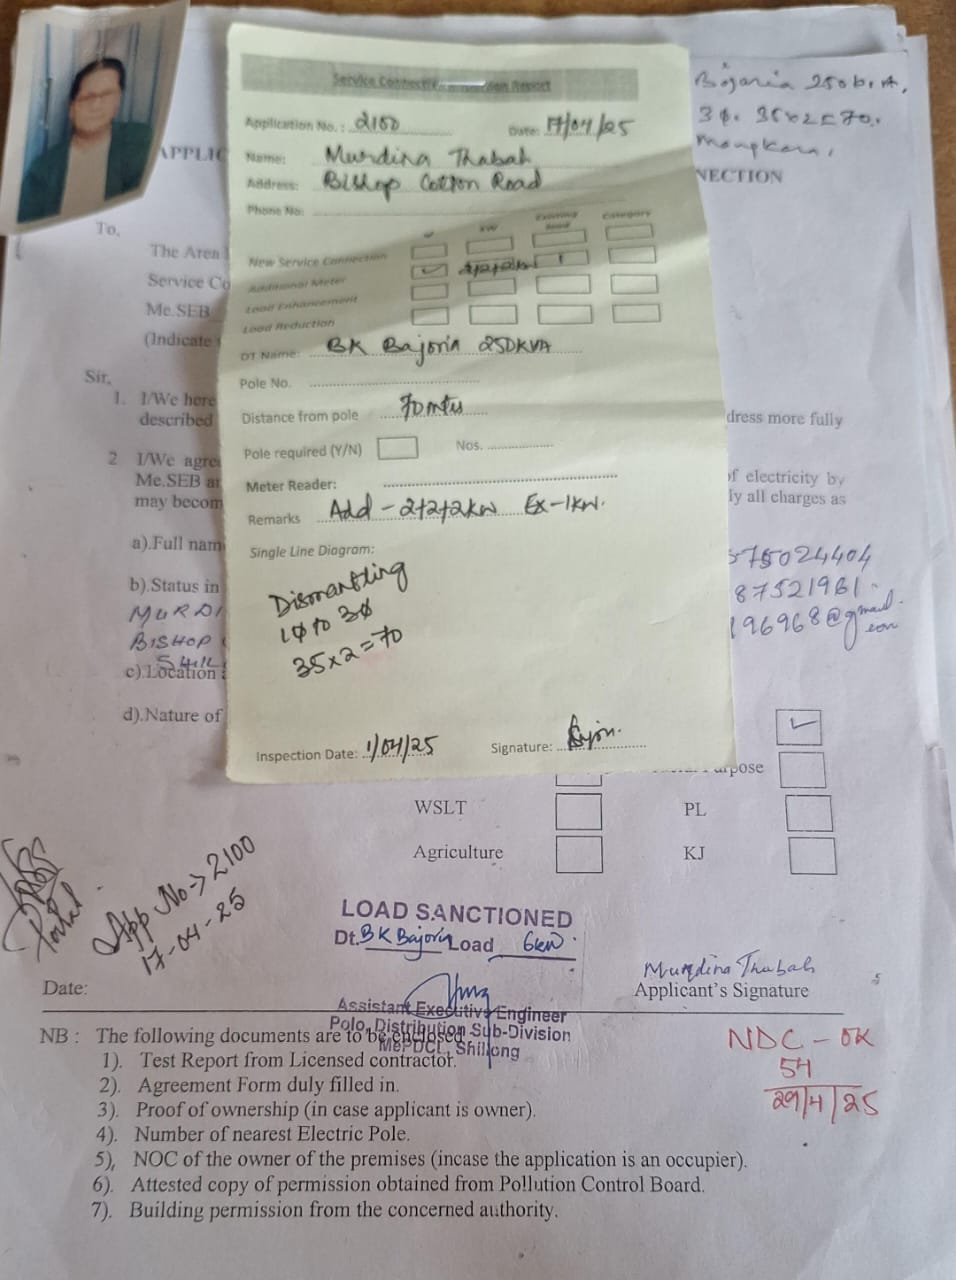 Service Connection Inspection Report
Application No. : 2100
Date: 17/04/25
Name: Murdina Thabah
Address: Bishop Cotton Road
Phone No:
KW
Existing
load
Category
New Service Connection
Additional Meter
2+2+2kw
1
Load Enhancement
Load Reduction
DT Name: BK Bajoria 250KVA
Pole No.
Distance from pole 70 mtrs
Pole required (Y/N)
Nos.
Meter Reader:
Remarks Add - 2+2+2kw Ex-1kw.
Single Line Diagram:
Dismantling
1φ to 3φ
35x2=70
Inspection Date: 1/04/25
Signature:
3φ. 35x2=70.
APPLIC
NECTION
To,
The Area
Service Co
Me.SEB
(Indicate
Sir,
1. I/We here
described
dress more fully
2 I/We agre
of electricity by
Me.SEB an
ly all charges as
may becom
a).Full nam
75024404
b).Status in
87521961
MURDI
196968@gmail.
com
BISHOP
SHIL
c).Location a
d).Nature of
rpose
WSLT
PL
Agriculture
KJ
Portal
App No→2100
17-04-25
LOAD SANCTIONED
Dt. BK Bajoria Load 6kw.
Murdina Thabah
Date:
Applicant's Signature
Assistant Executive Engineer
Polo Distribution Sub-Division
MePDCL, Shillong
NDC - OK
54
29/4/25
NB : The following documents are to be enclosed
1). Test Report from Licensed contractor.
2). Agreement Form duly filled in.
3). Proof of ownership (in case applicant is owner).
4). Number of nearest Electric Pole.
5), NOC of the owner of the premises (incase the application is an occupier).
6). Attested copy of permission obtained from Pollution Control Board.
7). Building permission from the concerned authority.